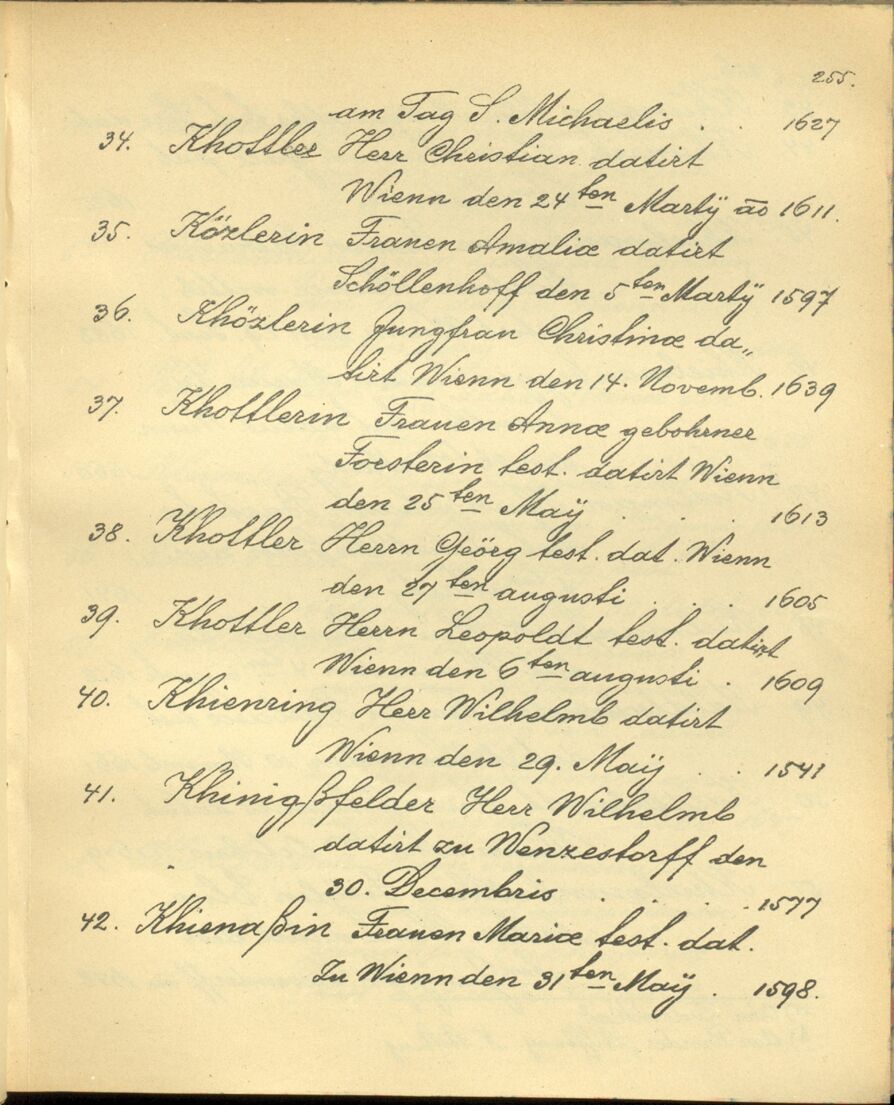 255.
am Tag S. Michaelis . . 1627
34. Khottler Herr Christian datirt
Wienn den 24ten Martÿ ao 1611.
35. Közlerin Frauen Amaliæ datirt
Schöllenhoff den 5ten Martÿ 1597
36. Khözlerin Jungfrau Christinæ da„
tirt Wienn den 14. Novemb. 1639
37. Khottlerin Frauen Annæ gebohrner
Foesterin test. datirt Wienn
den 25ten Maÿ . . . 1613
38. Khottler Herrn Geörg test. dat. Wienn
den 27ten augusti . . . 1605
39. Khottler Herrn Leopoldt test. datirt
Wienn den 6ten augusti . 1609
40. Khienring Herr Wilhelmb datirt
Wienn den 29. Maÿ . . 1541
41. Khinigßfelder Herr Wilhelmb
datirt zu Wenzestorff den
30. Decembris . . . 1577
42. Khienaßin Frauen Mariæ test. dat.
Zu Wienn den 31ten Maÿ . 1598.